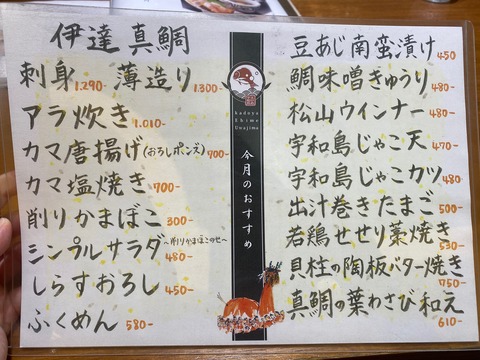 伊達 真鯛
刺身 1.290- 薄造り 1.300-
アラ炊き 1.010-
カマ唐揚げ(おろしポンズ) 700-
カマ塩焼き 700-
削りかまぼこ 300-
シンプルサラダ ～削りかまぼこのせ～ 480-
しらすおろし 450-
ふくめん 580-
kadoya
Ehime
Uwajima
今月のおすすめ
豆あじ南蛮漬け 450
鯛味噌きゅうり 480-
松山ウインナー 480-
宇和島じゃこ天 470-
宇和島じゃこカツ 480-
出汁巻きたまご 500-
若鶏せせり藁焼き 530-
貝柱の陶板バター焼き 750-
真鯛の葉わさび和え 610-